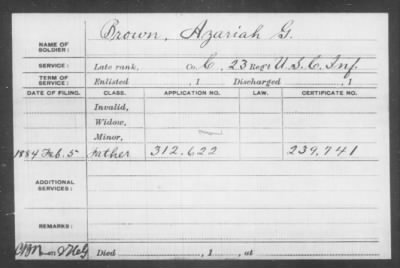 Brown, Azariah G.
NAME OF SOLDIER:
SERVICE: Late rank, Co. C, 23 Reg't U.S.C. Inf.
TERM OF SERVICE: Enlisted , 1 Discharged , 1
DATE OF FILING. CLASS. APPLICATION NO. LAW. CERTIFICATE NO.
Invalid,
Widow,
Minor,
1884 Feb. 5 Father 312.622 239,741
ADDITIONAL SERVICES:
REMARKS:
Died , 1 , at